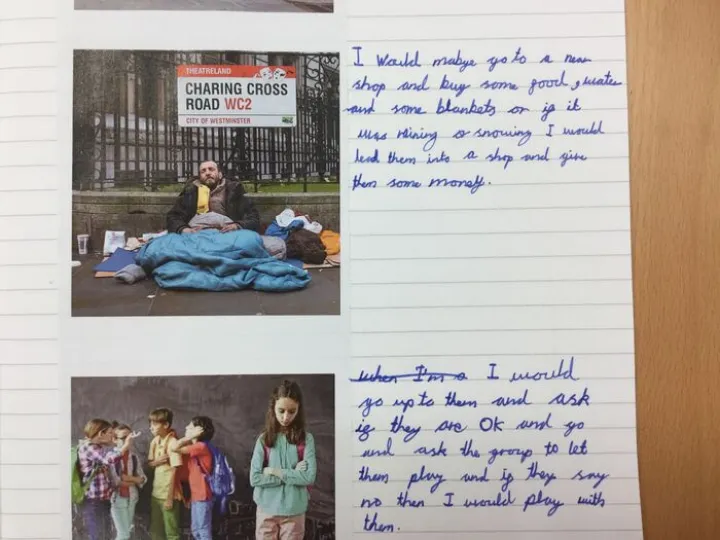 THEATRELAND
CHARING CROSS
ROAD WC2
CITY OF WESTMINSTER
I Would mabye go to a near
shop and buy some food, water
and some blankets or if it
was raining or snowing I would
lead them into a shop and give
them some money.
when I'm a I would
go up to them and ask
if they are OK and go
and ask the group to let
them play and if they say
no then I would play with
them.